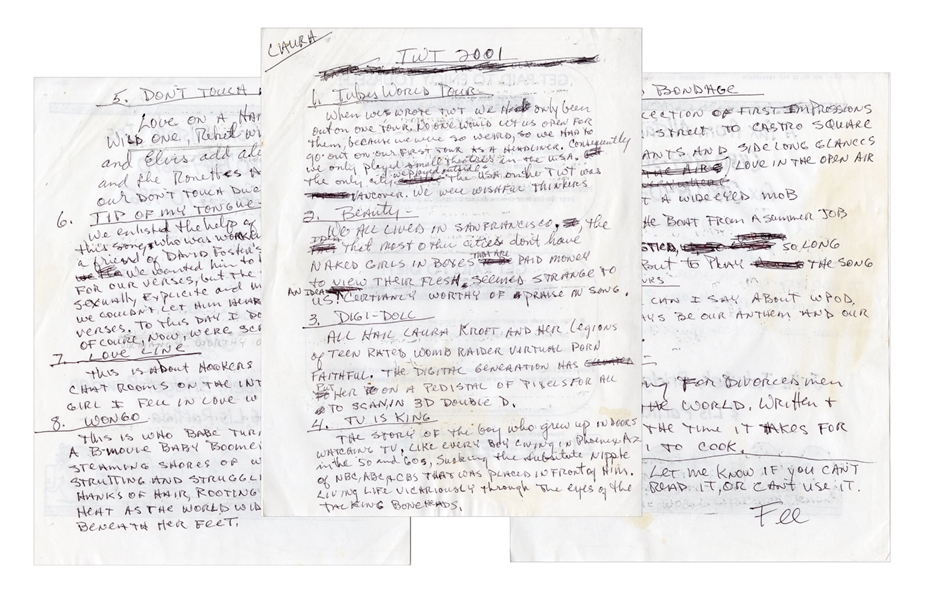 CLAURA
TWT 2001
1. Tubes World Tour
When we wrote TWT we had only been
out on one tour. No one would let us open for
them, because we were so weird, so we had to
go out on our first tour as a headliner. Consequently
we only played small theatres in the USA.
the only city we played outside the USA on the TWT was
Vancuver. We were wishful thinkers
2. Beauty-
We ALL LIVED IN SANFRANCISCO, the
That most other cities don't have
NAKED GIRLS IN BOXES THAT ARE PAID MONEY
TO VIEW THEIR FLESH, SEEMED STRANGE TO
AN IDEA US. CERTIANLY WORTHY OF PRAISE IN SONG.
3. DIGI-DOLL
ALL HAIL LAURA KROFT AND HER LEGIONS
of TEEN RATED WOMB RAIDER VIRTUAL PORN
FAITHFUL. THE DIGITAL GENERATION HAS
Put HER ON A PEDISTAL OF PIXELS FOR ALL
TO SCAN, IN 3D DOUBLE D.
4. TV IS KING
THE STORY OF The boy who grew up INDOORS
WATCHING TV. LIKE EVERY BOY LIVING IN Phoenix, AZ
in the 50 and 60s, Sucking the Substitute Nipple
of NBC, ABC, CBS THAT WAS PLACED IN FRONT of HIM.
LIVING LIFE VICARIOUSLY through THE EYES OF THE
TALKING BONEHEADS.
5. DON'T TOUCH
LOVE ON A
WILD ONE,
and Elvis add
and the Ronettes
our DON'T TOUCH
6. TIP OF MY TONGUE
We enlisted the help
this song, who was
a friend of DAVID FOSTER'S
We wanted him to
FOR OUR VERSES, but The
SEXUALLY Explicite and
we couldn't LET HIM HEAR
VERSES. TO THIS DAY I
OF COURSE, NOW, WE'RE
7. LOVE LINE
THIS IS ABOUT HOOKERS
CHAT ROOMS ON THE
GIRL I FELL IN LOVE
8. WONGO
THIS IS WHO BABE
A B-MOVIE BABY
STEAMING SHORES OF
STRUTTING AND
HANKS OF HAIR, ROOTING
HEAT AS THE WORLD
BENEATH HER FEET.
BONDAGE
OF FIRST IMPRESSIONS
TO CASTRO SQUARE
AND SIDE LONG GLANCES
LOVE IN THE OPEN AIR
A WIDEEYED MOB
THE BOAT FROM A SUMMER JOB
SO LONG
TO PLAY THE SONG
CAN I SAY ABOUT WPOD.
BE OUR ANTHEM AND OUR
FOR DIVORCED MEN
THE WORLD. WRITTEN +
THE TIME IT TAKES FOR
TO COOK.
LET ME KNOW IF YOU CAN'T
READ IT, OR CAN'T USE IT.
Fee